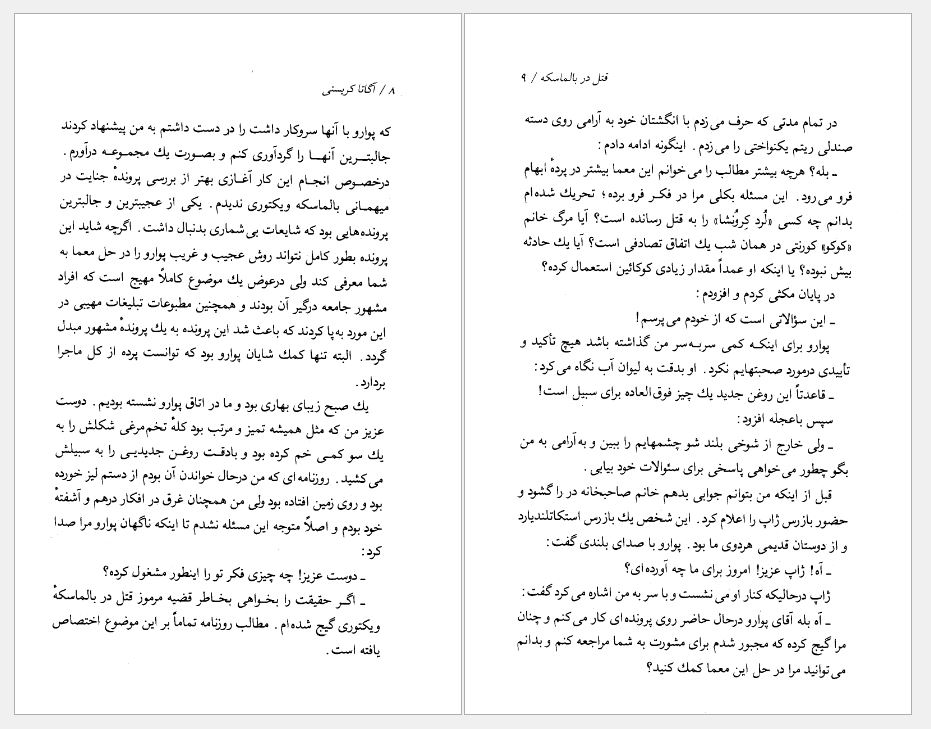 ۸ / آگاتا کریستی
که پوارو با آنها سروکار داشت را در دست داشتم به من پیشنهاد کردند
جالبتــرین آنهــا را گردآوری کنم و بصــورت یك مجمــوعــه درآورم.
درخصــوص انجــام این کار آغــازی بهتر از بررسی پروندهٔ جنایت در
میهمــانی بالماسکه ویکتوری ندیدم. یکی از عجیبترین و جالبترین
پرونده‌هایی بود که شایعات بی‌شماری بدنبال داشت. اگرچه شاید این
پرونده بطور کامل نتواند روش عجیب و غریب پوارو را در حل معما به
شما معرفی کند ولی درعوض یك موضوع کاملاً مهیج است که افراد
مشهور جامعه درگیر آن بودند و همچنین مطبوعات تبلیغات مهیبی در
این مورد به‌پا کردند که باعث شد این پرونده به یك پروندهٔ مشهور مبدل
گردد. البته تنها کمك شایان پوارو بود که توانست پرده از کل ماجرا
بردارد.
یك صبح زیبای بهاری بود و ما در اتاق پوارو نشسته بودیم. دوست
عزیز من که مثل همیشه تمیز و مرتب بود کلهٔ تخم‌مرغی شکلش را به
یك سو کمــی خم کرده بود و بادقــت روغــن جدیدیــی را به سبیلش
می‌کشید. روزنامه‌ای که من درحال خواندن آن بودم از دستم لیز خورده
بود و روی زمین افتاده بود ولی من همچنان غرق در افکار درهم و آشفتهٔ
خود بودم و اصلاً متوجه این مسئله نشدم تا اینکه ناگهان پوارو مرا صدا
کرد:
ـ دوست عزیز! چه چیزی فکر تو را اینطور مشغول کرده؟
ـ اگــر حقیقت را بخــواهی بخــاطر قضیه مرموز قتل در بالماسکهٔ
ویکتوری گیج شده‌ام. مطالب روزنامه تماماً بر این موضوع اختصاص
یافته است.
قتل در بالماسکه / ۹
در تمام مدتی که حرف می‌زدم با انگشتان خود به آرامی روی دسته
صندلی ریتم یکنواختی را می‌زدم. اینگونه ادامه دادم:
ـ بله؟ هرچه بیشتر مطالب را می‌خوانم این معما بیشتر در پردهٔ ابهام
فرو می‌رود. این مسئله بکلی مرا در فکــر فرو برده؛ تحریك شده‌ام
بدانم چه کسی «لُرد کِروُنشا» را به قتل رسانده است؟ آیا مرگ خانم
«کوکو» کورتنی در همان شب یك اتفاق تصادفی است؟ آیا یك حادثه
بیش نبوده؟ یا اینکه او عمداً مقدار زیادی کوکائین استعمال کرده؟
در پایان مکثی کردم و افزودم:
ـ این سؤالاتی است که از خودم می‌پرسم!
پوارو برای اینکــه کمی سربــه‌سر من گذاشته باشد هیچ تأکید و
تأییدی درمورد صحبتهایم نکرد. او بدقت به لیوان آب نگاه می‌کرد:
ـ قاعدتاً این روغن جدید یك چیز فوق‌العاده برای سبیل است!
سپس باعجله افزود:
ـ ولی خارج از شوخی بلند شو چشمهایم را ببین و به‌آرامی به من
بگو چطور می‌خواهی پاسخی برای سئوالات خود بیابی.
قبل از اینکه من بتوانم جوابی بدهم خانم صاحبخانه در را گشود و
حضور بازرس ژاپ را اعلام کرد. این شخص یك بازرس اسکاتلندیارد
و از دوستان قدیمی هردوی ما بود. پوارو با صدای بلندی گفت:
ـ آه! ژاپ عزیز! امروز برای ما چه آورده‌ای؟
ژاپ درحالیکه کنار او می‌نشست و با سر به من اشاره می‌کرد گفت:
ـ آه بله آقای پوارو درحال حاضر روی پرونده‌ای کار می‌کنم و چنان
مرا گیج کرده که مجبور شدم برای مشورت به شما مراجعه کنم و بدانم
می‌توانید مرا در حل این معما کمك کنید؟